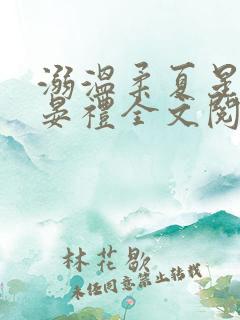 溺温柔夏星
晏禮全文閱
林花歇
未经同意禁止转载